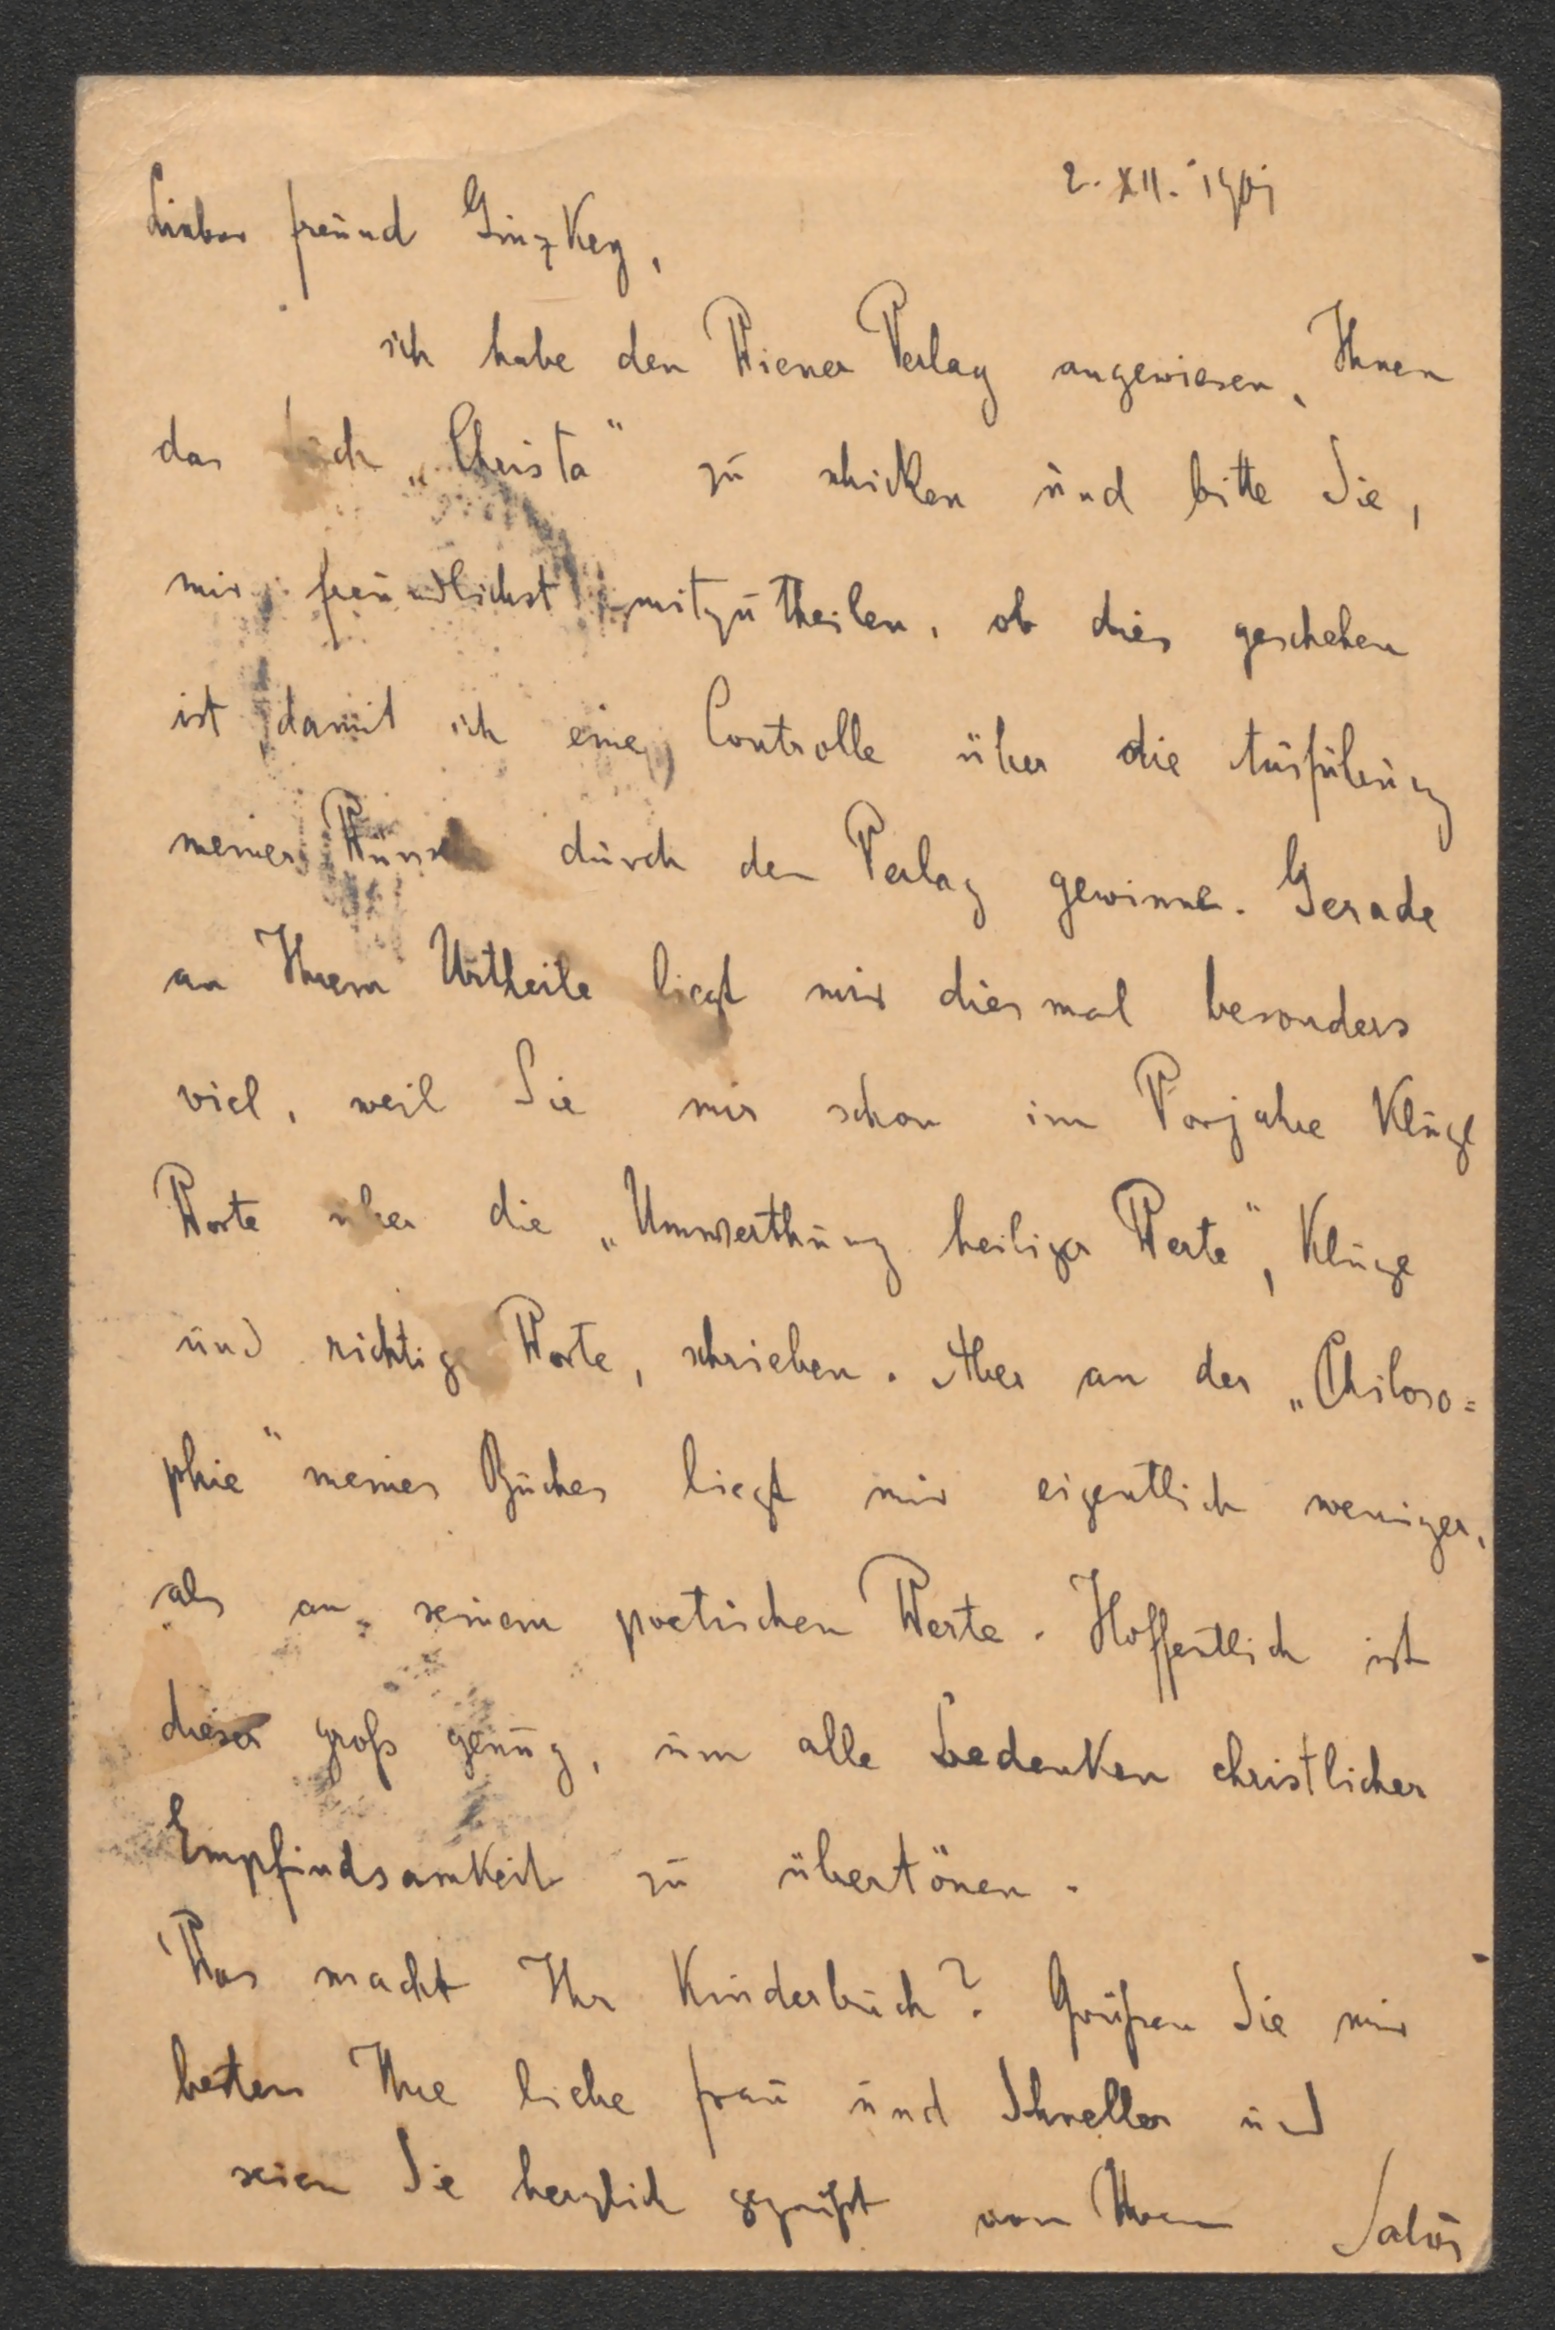 2. XII. 1901
Lieber Freund Ginzkey,
ich habe den Wiener Verlag angewiesen, Ihnen
das Buch „Christa" zu schicken und bitte Sie,
mir freundlichst mitzutheilen, ob dies geschehen
ist damit ich eine Controlle über die Ausführung
meiner Wünsche durch den Verlag gewinne. Gerade
an Ihrem Urtheile liegt mir diesmal besonders
viel, weil Sie mir schon im Vorjahre kluge
Worte über die „Umwerthung heiliger Werte", kluge
und richtige Worte, schrieben. Aber an der „Philoso=
phie" meines Buches liegt mir eigentlich weniger,
als an seinem poetischen Werte. Hoffentlich ist
dieser groß genug, um alle Bedenken christlicher
Empfindsamkeit zu übertönen.
Was macht Ihr Kinderbuch? Grüßen Sie mir
bestens Ihre liebe Frau und Schneller und
seien Sie herzlich gegrüßt von Ihrem Salus